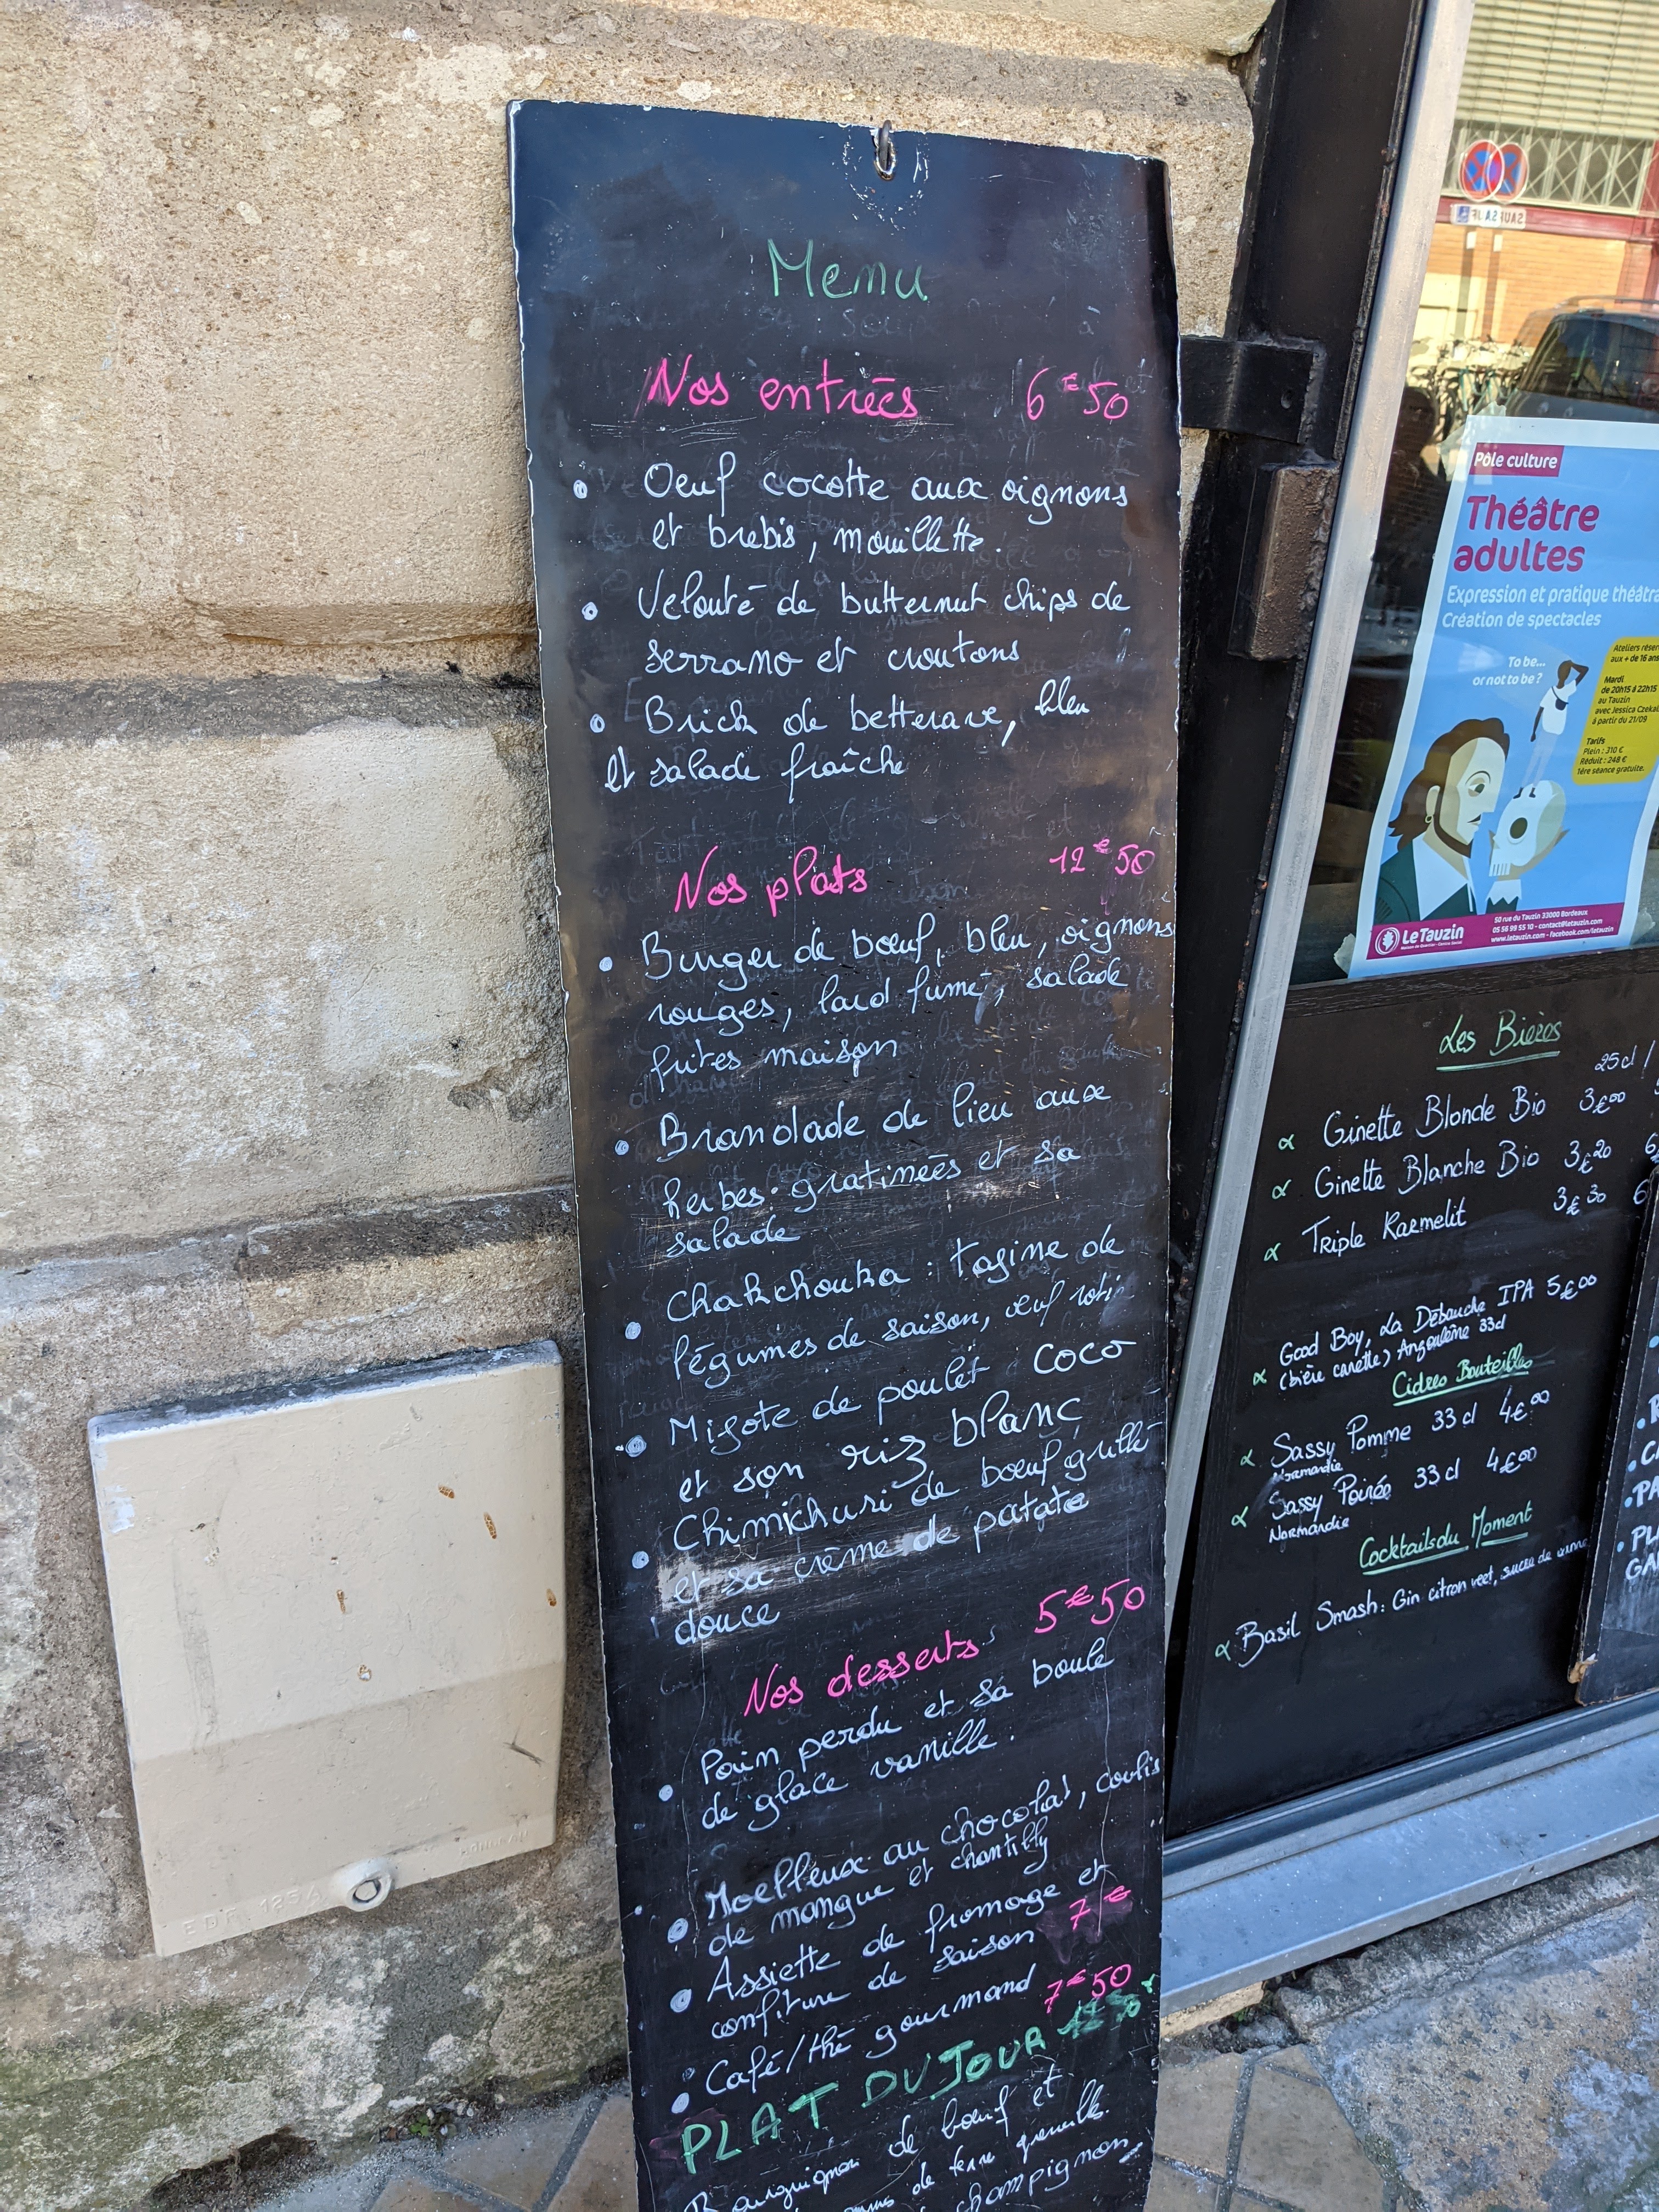 Menu
Nos entrées 6€50
• Oeuf cocotte aux oignons
et brebis, mouillette.
• Velouté de butternut chips de
serrano et croutons
• Brick de betterave, bleu
et salade fraîche
Nos plats 12€50
• Burger de bœuf, bleu, oignons
rouges, lard fumé, salade
frites maison
• Brandade de lieu aux
herbes gratinées et sa
salade
• Chakchouka : tagine de
légumes de saison, œuf roti
• Mijote de poulet coco
et son riz blanc
• Chimichuri de bœuf grillé
et sa crème de patate
douce
Nos desserts 5€50
• Pain perdu et sa boule
de glace vanille.
• Moelleux au chocolat, coulis
de mangue et chantilly
• Assiette de fromage et
confiture de saison 7€
• Café/thé gourmand 7€50
PLAT DU JOUR
Bourguignon de bœuf et
de terre grenailles.
champignons
Pôle culture
Théâtre
adultes
Expression et pratique théâtra
Création de spectacles
To be...
or not to be ?
Ateliers réser
aux + de 16 ans
Mardi
de 20h15 à 22h15
au Tauzin
avec Jessica Czekal
à partir du 21/09
Tarifs
Plein : 310 €
Réduit : 248 €
1ère séance gratuite.
Le Tauzin
Maison de Quartier - Centre Social
50 rue du Tauzin 33000 Bordeaux
05 56 99 55 10 - contact@letauzin.com
www.letauzin.com - facebook.com/letauzin
Les Bières
25cl /
Ginette Blonde Bio 3€00
Ginette Blanche Bio 3€20 6
Triple Karmelit 3€30 6
Good Boy, La Débauche IPA 5€00
(bière canette) Angoulême 33cl
Cidres Bouteilles
Sassy Pomme 33cl 4€00
Normandie
Sassy Poirée 33cl 4€00
Normandie
Cocktails du Moment
Basil Smash: Gin citron vert, sucre de canne
EDF